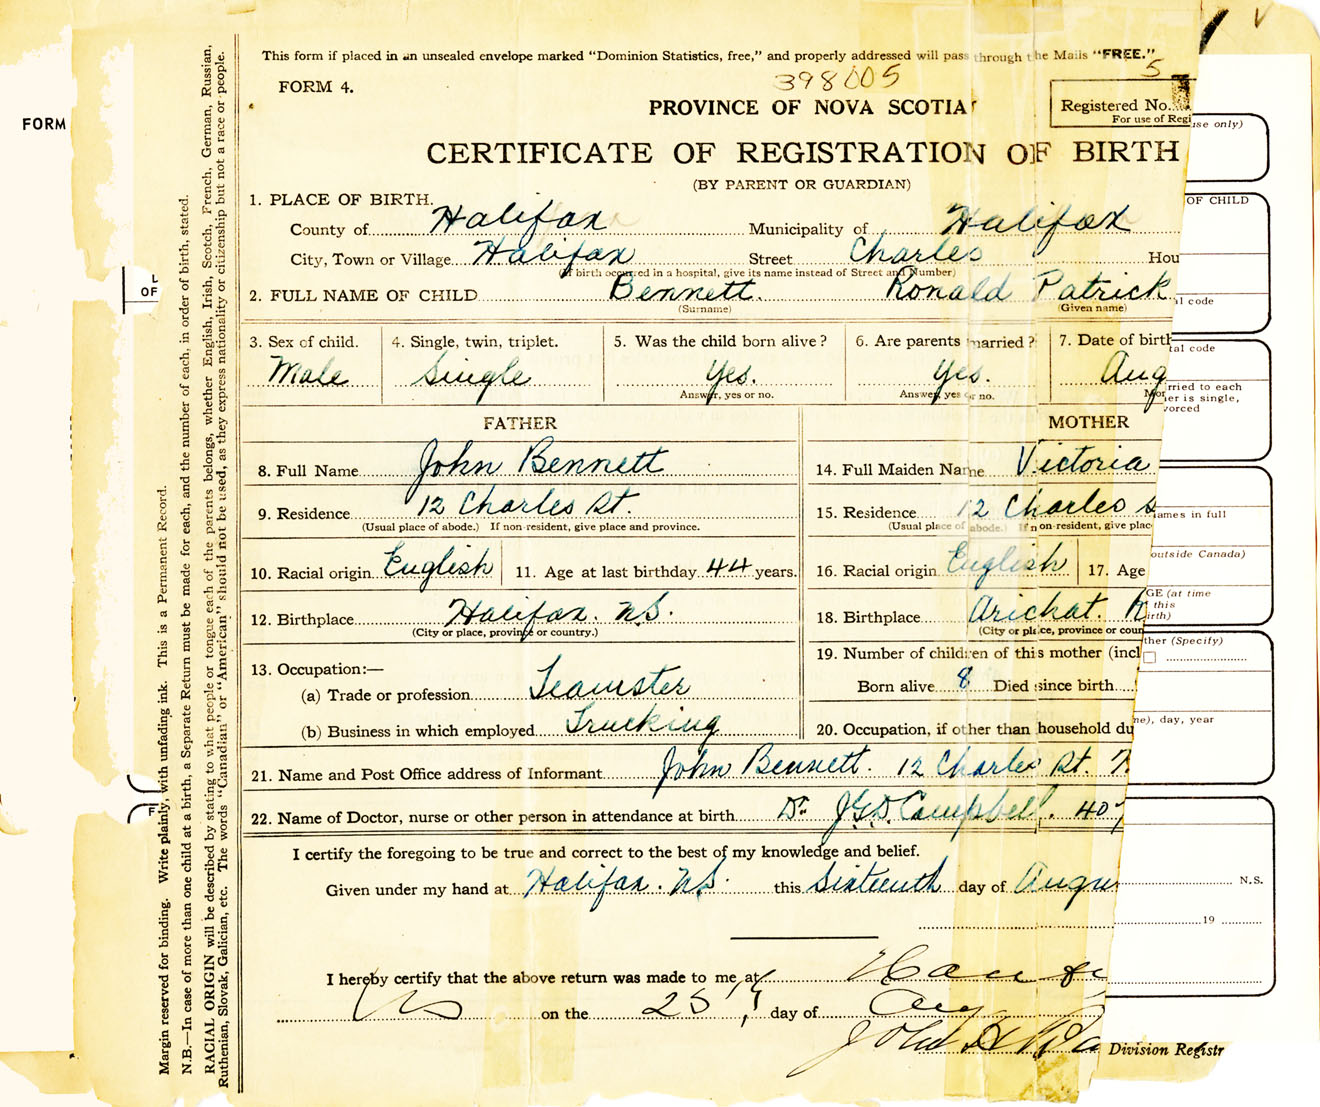 This form if placed in an unsealed envelope marked "Dominion Statistics, free," and properly addressed will pass through the Mails "FREE."
5
FORM 4.
398005
PROVINCE OF NOVA SCOTIA
Registered No.
For use of Regi
use only)
FORM
CERTIFICATE OF REGISTRATION OF BIRTH
(BY PARENT OR GUARDIAN)
1. PLACE OF BIRTH.
OF CHILD
County of Halifax Municipality of Halifax
City, Town or Village Halifax Street Charles Hou
(If birth occurred in a hospital, give its name instead of Street and Number)
2. FULL NAME OF CHILD Bennett. Ronald Patrick
(Surname) (Given name)
al code
L
OF
3. Sex of child. 4. Single, twin, triplet. 5. Was the child born alive? 6. Are parents married? 7. Date of birth
tal code
Male Single Yes. Yes. Aug
Answer, yes or no. Answer, yes or no. Mon
rried to each
er is single,
vorced
FATHER MOTHER
8. Full Name John Bennett 14. Full Maiden Name Victoria
9. Residence 12 Charles St. 15. Residence 12 Charles S
(Usual place of abode.) If non-resident, give place and province. (Usual place of abode.) If non-resident, give plac
ames in full
outside Canada)
10. Racial origin English 11. Age at last birthday 44 years. 16. Racial origin English 17. Age
GE (at time
this
irth)
12. Birthplace Halifax. N.S. 18. Birthplace Arichat.
(City or place, province or country.) (City or place, province or coun
ther (Specify)
13. Occupation:— 19. Number of children of this mother (incl
(a) Trade or profession Teamster Born alive 8 Died since birth
(b) Business in which employed Trucking 20. Occupation, if other than household du
ne), day, year
21. Name and Post Office address of Informant John Bennett. 12 Charles St.
F
22. Name of Doctor, nurse or other person in attendance at birth Dr. J.G.D. Campbell. 407
I certify the foregoing to be true and correct to the best of my knowledge and belief.
Given under my hand at Halifax. N.S. this Sixteenth day of Augu
N.S.
19
I hereby certify that the above return was made to me at
on the 25 day of Aug
John
Division Registr
Margin reserved for binding. Write plainly, with unfading ink. This is a Permanent Record.
N.B.—In case of more than one child at a birth, a Separate Return must be made for each, and the number of each, in order of birth, stated.
RACIAL ORIGIN will be described by stating to what people or tongue each of the parents belongs, whether English, Irish, Scotch, French, German, Russian,
Ruthenian, Slovak, Galician, etc. The words "Canadian" or "American" should not be used, as they express nationality or citizenship but not a race or people.